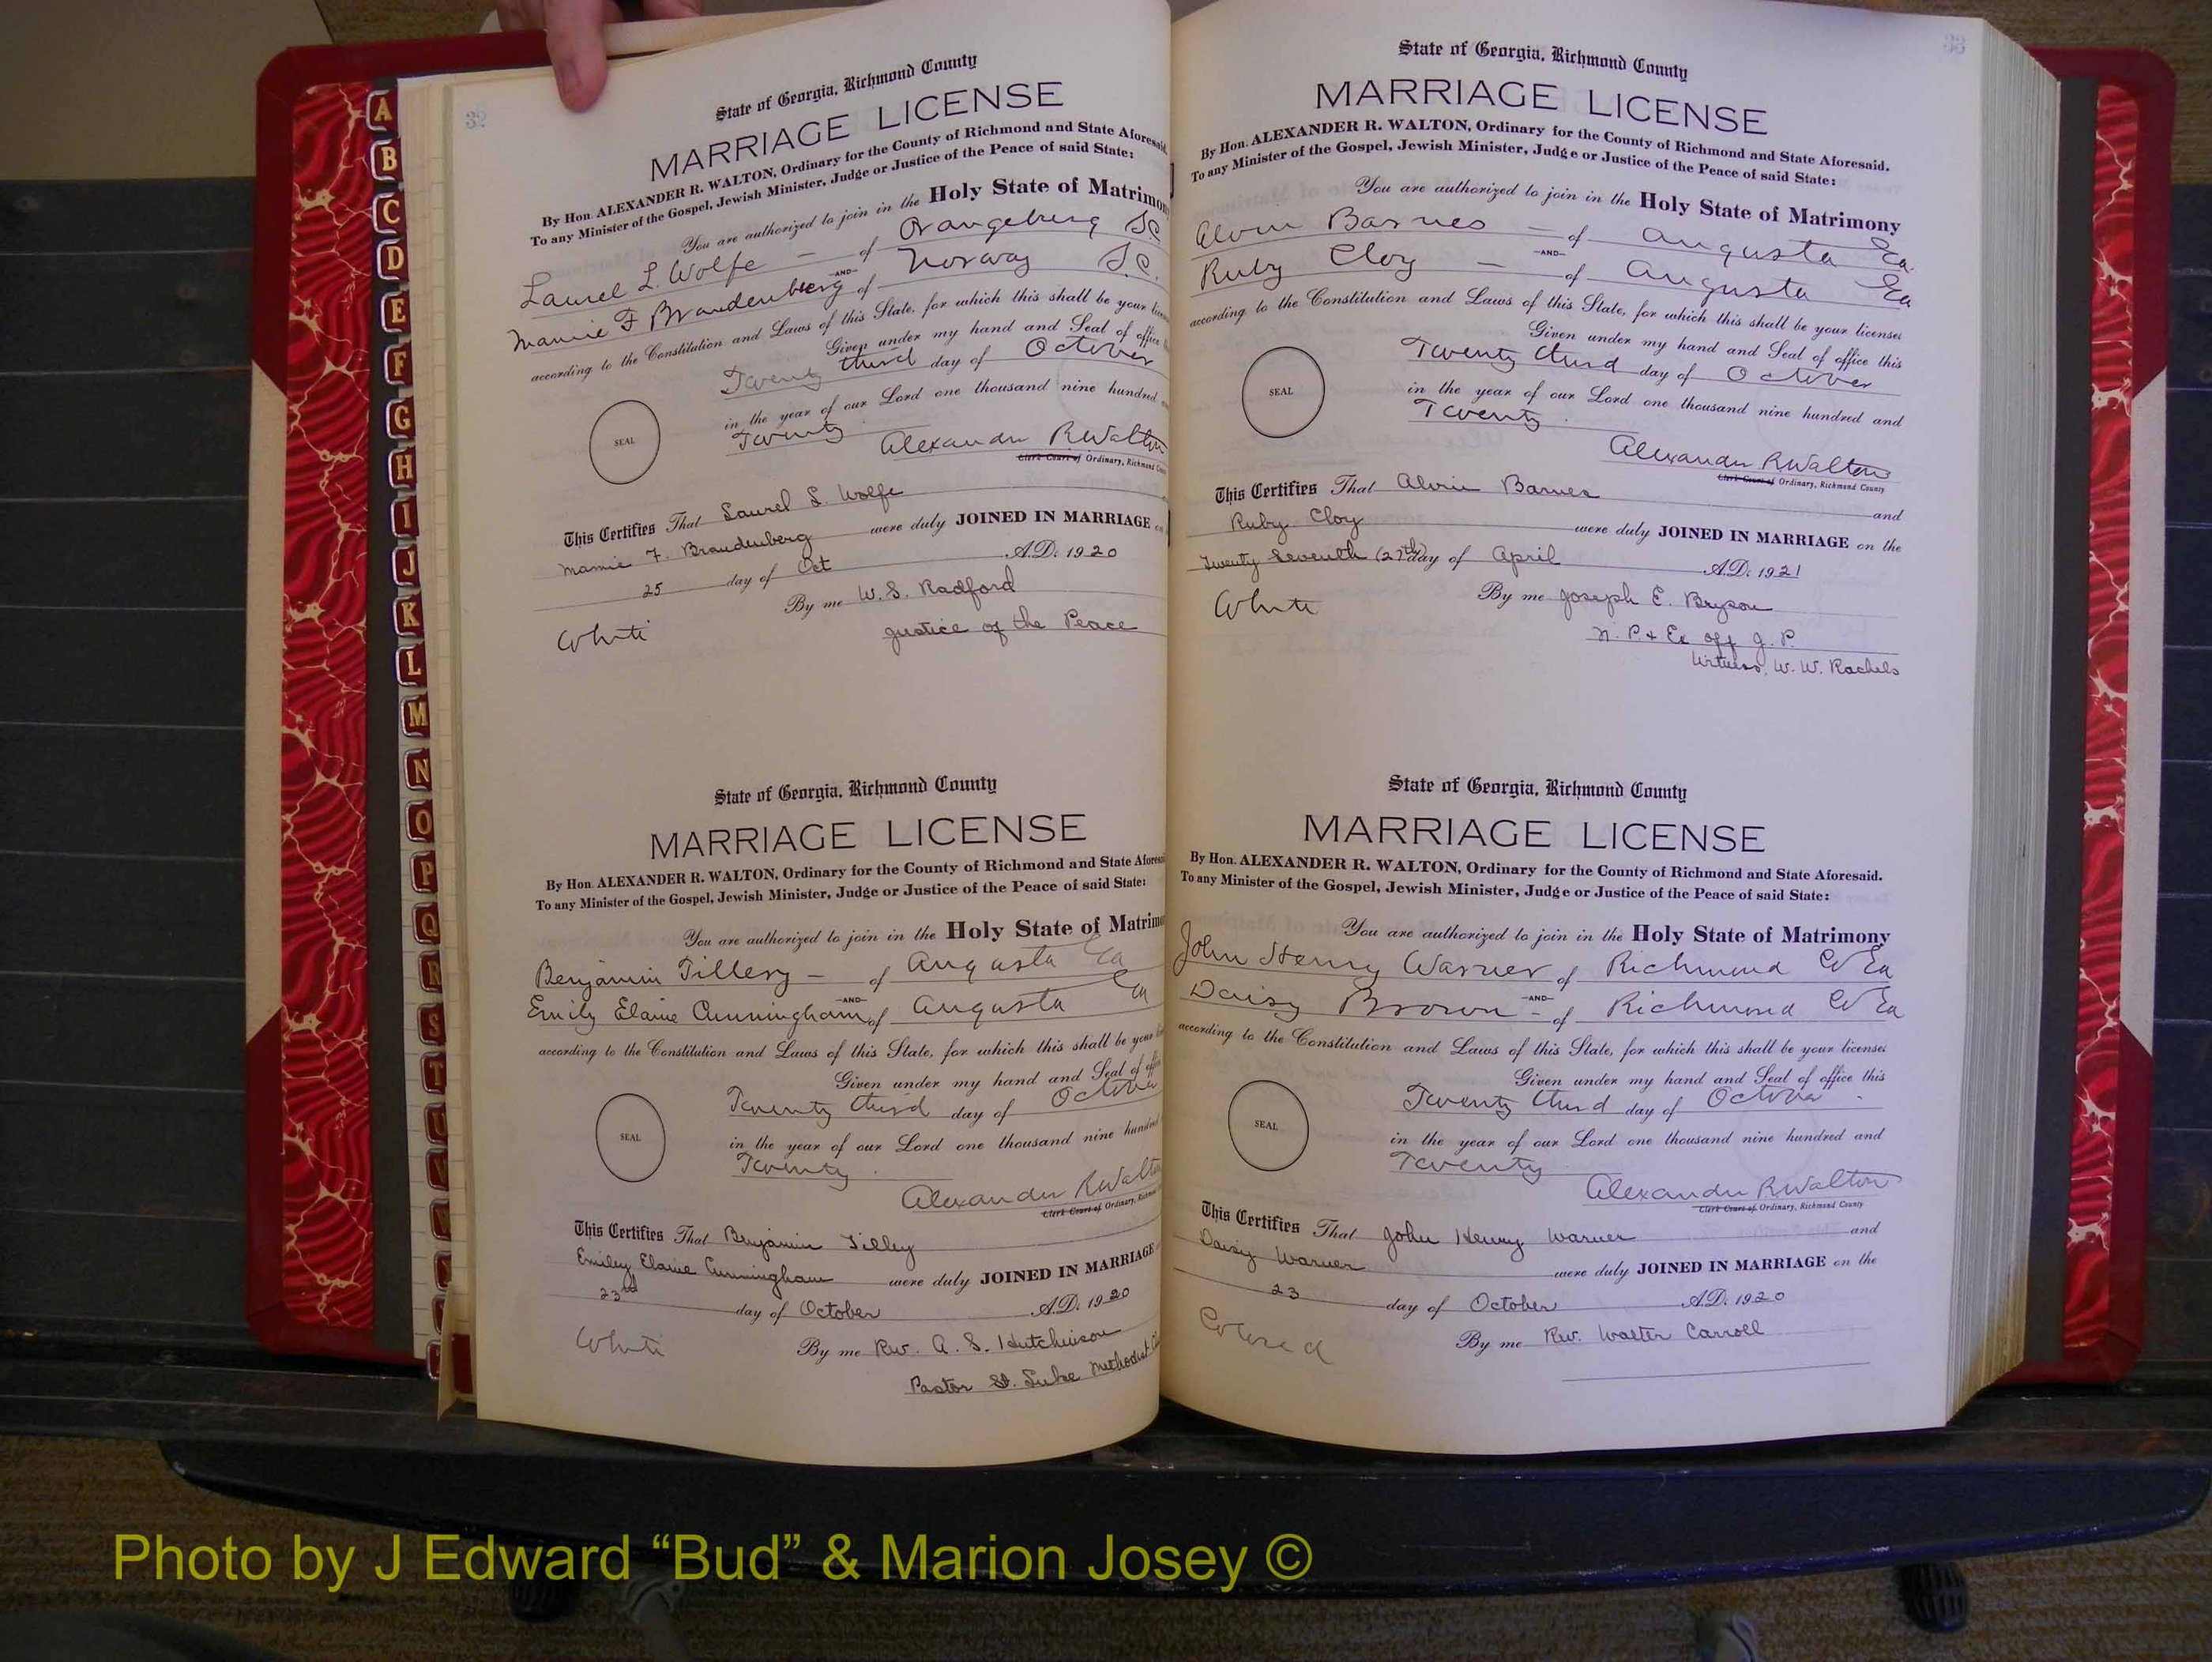 32
State of Georgia, Richmond County
MARRIAGE LICENSE
By Hon. ALEXANDER R. WALTON, Ordinary for the County of Richmond and State Aforesaid.
To any Minister of the Gospel, Jewish Minister, Judge or Justice of the Peace of said State:
You are authorized to join in the Holy State of Matrimony
Laurel L. Wolfe — of Orangeburg S.C.
AND
Mamie F Brandenberg of Norway S.C.
according to the Constitution and Laws of this State, for which this shall be your
Given under my hand and Seal of office
Twenty third day of October
in the year of our Lord one thousand nine hundred
Twenty
SEAL
Alexander R Walton
Clerk Court of Ordinary, Richmond
This Certifies That Laurel L. Wolfe
Mamie F. Brandenberg were duly JOINED IN MARRIAGE
25 day of Oct A.D. 1920
By me W. S. Radford
White Justice of the Peace
State of Georgia, Richmond County
MARRIAGE LICENSE
By Hon. ALEXANDER R. WALTON, Ordinary for the County of Richmond and State
To any Minister of the Gospel, Jewish Minister, Judge or Justice of the Peace of said State:
You are authorized to join in the Holy State of
Benjamin Tillery — of Augusta Ga
AND
Emily Elaine Cunningham of Augusta Ga
according to the Constitution and Laws of this State, for which this shall be your
Given under my hand and Seal of
Twenty third day of October
in the year of our Lord one thousand nine
Twenty
SEAL
Alexander R Walton
Clerk Court of Ordinary,
This Certifies That Benjamin Tilley
Emiley Elaine Cunningham were duly JOINED IN MARRIAGE
23rd day of October A.D. 1920
White By me Rev. A. S. Hutchinson
Pastor St. Luke Methodist
33
State of Georgia, Richmond County
MARRIAGE LICENSE
By Hon. ALEXANDER R. WALTON, Ordinary for the County of Richmond and State Aforesaid.
To any Minister of the Gospel, Jewish Minister, Judge or Justice of the Peace of said State:
You are authorized to join in the Holy State of Matrimony
Alvin Barnes — of Augusta Ga.
AND
Ruby Cloy — of Augusta Ga
according to the Constitution and Laws of this State, for which this shall be your license
Given under my hand and Seal of office this
Twenty third day of October
in the year of our Lord one thousand nine hundred and
Twenty
SEAL
Alexander R Walton
Clerk Court of Ordinary, Richmond County
This Certifies That Alvin Barnes and
Ruby Cloy were duly JOINED IN MARRIAGE on the
Twenty Seventh (27th) day of April A.D. 1921
White By me Joseph E. Bryson
N. P. & Ex Off J. P.
Witness, W. W. Rachels
State of Georgia, Richmond County
MARRIAGE LICENSE
By Hon. ALEXANDER R. WALTON, Ordinary for the County of Richmond and State Aforesaid.
To any Minister of the Gospel, Jewish Minister, Judge or Justice of the Peace of said State:
You are authorized to join in the Holy State of Matrimony
John Henry Warner of Richmond Co Ga
AND
Daisy Brown — of Richmond Co Ga
according to the Constitution and Laws of this State, for which this shall be your license
Given under my hand and Seal of office this
Twenty third day of October
in the year of our Lord one thousand nine hundred and
Twenty
SEAL
Alexander R. Walton
Clerk Court of Ordinary, Richmond County
This Certifies That John Henry Warner and
Daisy Warner were duly JOINED IN MARRIAGE on the
23 day of October A.D. 1920
Colored By me Rev. Walter Carroll
A
B
C
D
E
F
G
H
I
J
K
L
M
N
O
P
Q
R
S
T
U
V
W
Photo by J Edward “Bud” & Marion Josey ©